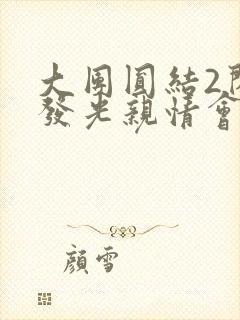 大團圓結2
發光親情會
顏雪